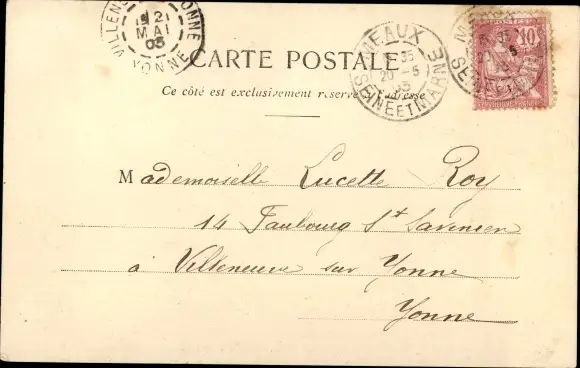 VILLEN YONNE
2
MAI
05
YONNE
CARTE POSTALE
Ce côté est exclusivement réservé adresse
MEAUX
35
20 -5
05
SEINE ET MARNE
10
POSTES
SEINE ET MARNE
Mademoiselle Lucette Roy
14 Faubourg St Savinien
à Villeneuve sur Yonne
Yonne